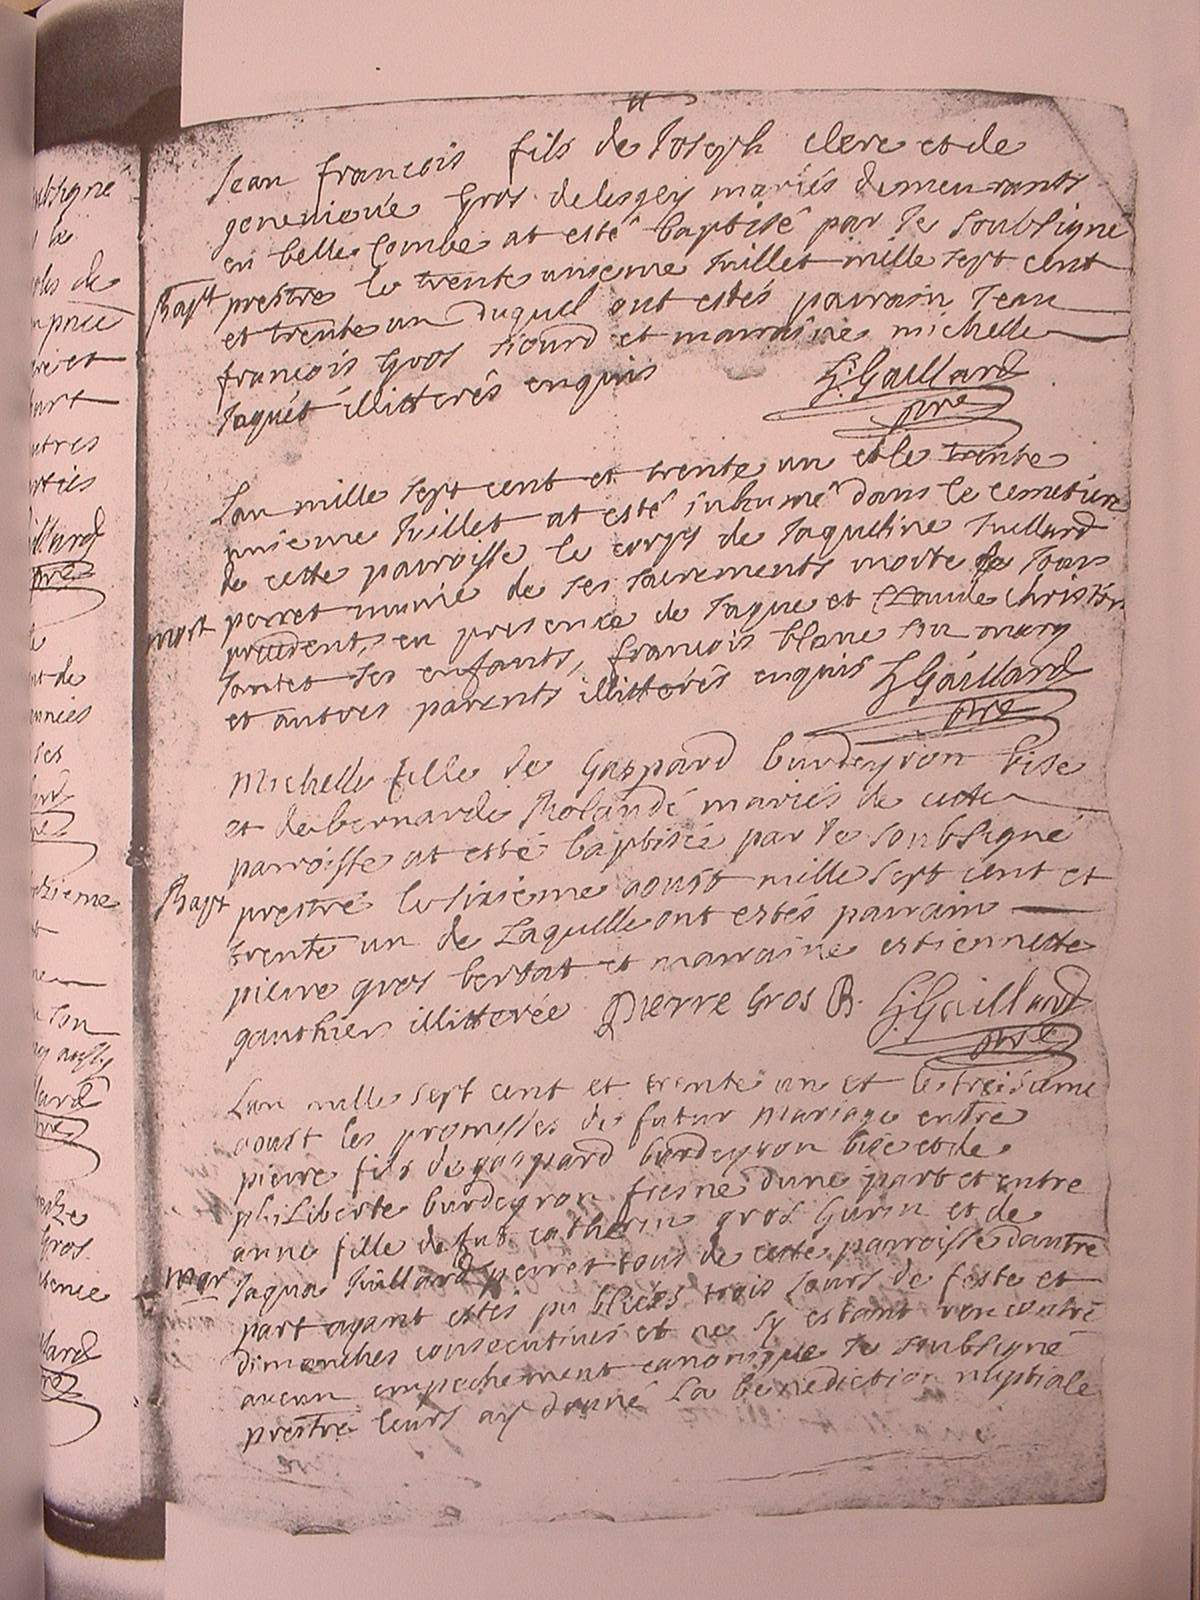 Jean françois fils de Joseph clerc et de
genevieve gros delesgey mariés demeurants
en belle combe at esté baptisé par Je soubsigné
Bapt prestre le trente unieme Juillet mille sept cent
et trente un duquel ont estés parrain Jean
françois gros siourd et marraine michelle
Jaquet illitterés enquis G Gaillard
pre
Lan mille sept cent et trente un et le trente
unieme Juillet at esté inhumé dans le cemetiere
de cette parroisse le corps de Jaqueline Juillard
mort perret munie de ses sacrements morte le Jour
precedent, en presence de Jaque et Claude Christin
Jantet ses enfants, françois blanc son mary
et autres parents illitterés enquis G Gaillard
pre
Michelle fille de Gaspard burdeyron bise
et de bernarde Rolandé mariés de cette
parroisse at esté baptisée par Je soubsigné
Bapt prestre le sixieme aoust mille sept cent et
trente un de Laquelle ont estés parrain
pierre gros berthat et marraine estiennette
gauthier illitterée Pierre Gros B. G Gaillard
pre
Lan mille sept cent et trente un et le treisieme
aoust les promesses de futur mariage entre
pierre fils de gaspard burdeyron bise et de
philiberte burdeyron fresne dune part et entre
anne fille de fut catherin gros Gurin et de
mar Jaqua Juillard perret tous de cette parroisse dautre
part ayant estés publiées trois Jours de feste et
dimanches consecutives et ne sy estant rencontré
aucun empechement canonique Je soubsigné
prestre leurs ay donné La benediction nuptiale